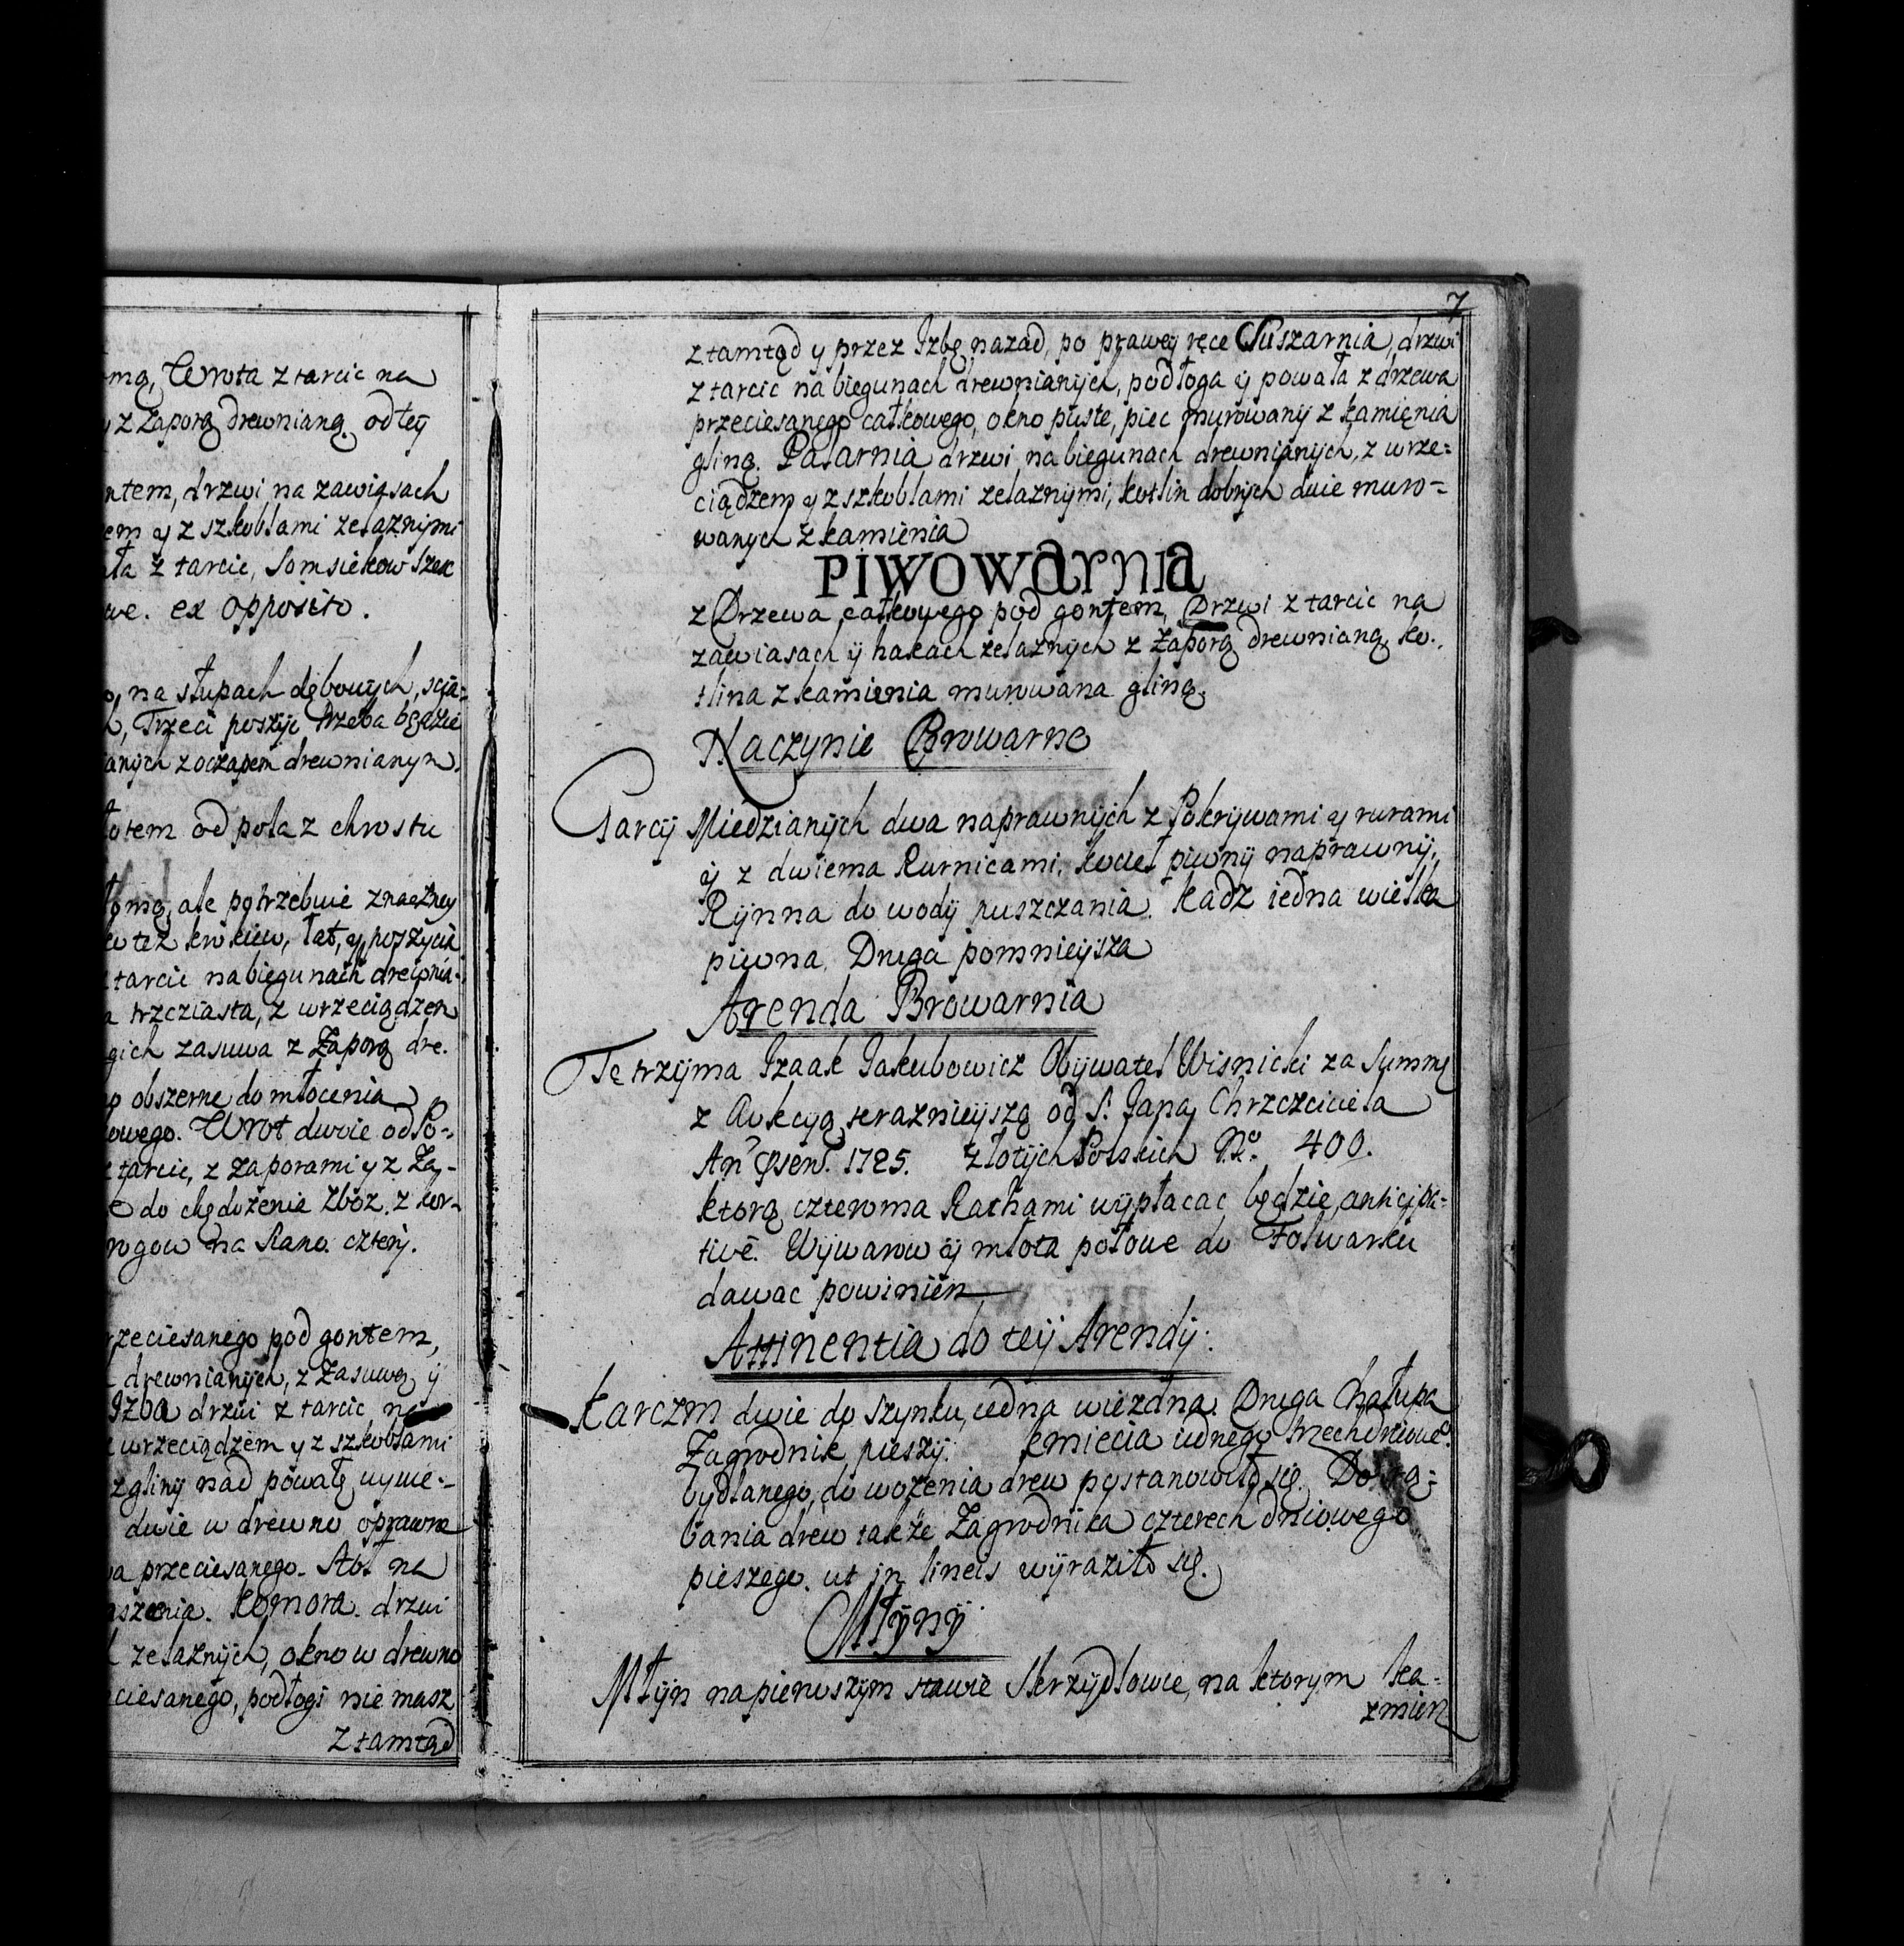 mą, Wrota z tarcic na
y z Zaporą drewnianą. od tey
ntem, drzwi na zawiasach
em y z szkoblami zelaznymi
ała z tarcic, Somsiekow szesc
we. ex opposito.
o, na słupach dębowych, scia-
Trzeci poszyc trzeba będzie
anych z oczapem drewnianym.
łotem od pola z chrostu
łomą, ale potrzebuie znaczney
też krokiew, łat, y poszycia
z tarcic na biegunach drewnia-
a trzcziasta, z wrzeciądzem
gich zasuwa z Zaporą dre.
o obszerne do młocenia
owego. Wrot dwoie od Po-
z tarcic, z zaporami y z Za-
do chędożenie zboz. z kor-
rogow na Siano. cztery.
rzeciesanego pod gontem,
drewnianych, z Zasuwą y
Izba drzwi z tarcic na
z wrzeciądzem y z szkoblami
z gliny nad powałę wywie-
dwie w drewno oprawne
wa przeciesanego. Stoł na
szenia. Komora. drzwi
zelaznych, okno w drewno
ciesanego, podłogi nie masz
Ztamtąd
7
ztamtąd y przez Izbę nazad, po prawey ręce Suszarnia, drzwi
z tarcic na biegunach drewnianych, podłoga y powała z drzewa
przeciesanego całkowego, okno puste, piec murowany z kamięnia
gliną. Palarnia drzwi na biegunach drewnianych, z wrze-
ciądzem y z szkoblami zelaznymi, kotlin dobrych dwie muro-
wanych z kamienia
PIWOWARNIA
z Drzewa całkowego pod gontem, Drzwi z tarcic na
zawiasach y hakach zelaznych z Zaporą drewnianą. ko-
tlina z kamienia murowana gliną.
Naczynie Browarne
Garcy Miedzianych dwa naprawnych z Pokrywami y rurami
y z dwiema Rurnicami, kocieł piwny naprawny.
Rynna do wody puszczania. Kadz iedna wielka
piwna. Druga pomnieysza
Arenda Browarnia
Tę trzyma Izaak Jakubowicz Obywatel Wisnicki za Summę
z Aukcyą terazneiyszą od S. Jana Chrzcziciela
An̄ p̄sen̄. 1725. złotych Polskich No. 400.
ktorą czteroma Rathami wypłacac będzie anticipa-
tivē. Wywarow y młota połowe do Folwarku
dawac powinien
Attinentia do tey Arendy.
Karczm dwie do szynku, iedna wiezdna. Druga Chałupa
Zagrodnik pieszy. kmiecia iednego trzechdniowe°
bydlanego, do wożenia drew postanowiło się. Do rą-
bania drew także Zagrodnika czterech dniowego
pieszego. ut in lineis wyraziło się.
Młyny
Młyn na pierwszym stawie Skrzydlowie, na ktorym ka-
zmien